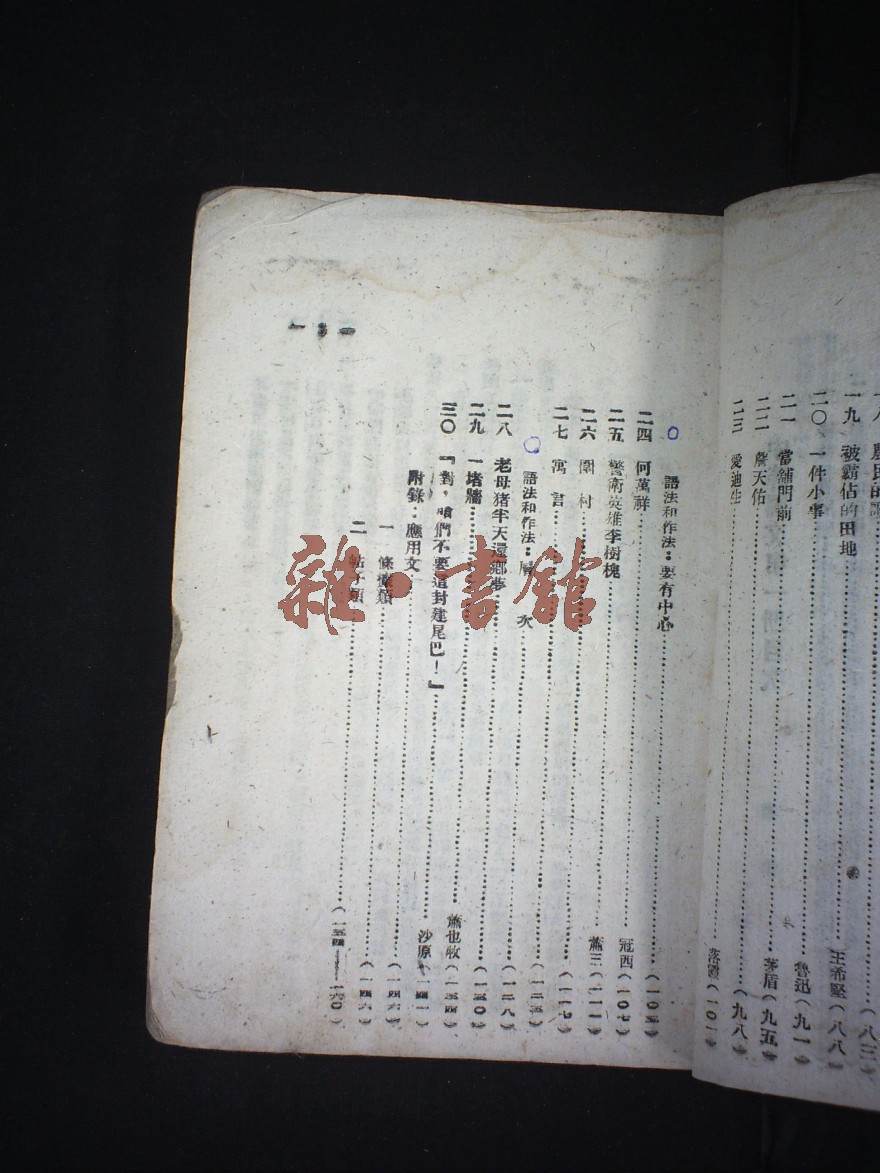 農民的
一九 被霸佔的田地……王希堅(八八)
二〇 一件小事……魯迅(九一)
二一 當舖門前……茅盾(九五)
二二 詹天佑……(九八)
二三 愛迪生……落霞(一〇一)
語法和作法：要有中心……(一〇五)
二四 何萬祥……冠西(一〇七)
二五 警衛英雄李樹槐……蕭三(一一一)
二六 圍村……(一一七)
二七 寓言……
語法和作法：層次……(一二八)
二八 老母猪半天還鄉夢……(一三〇)
二九 一堵牆……蕭也牧(一三四)
三〇 「對，咱們不要這封建尾巴！」……沙原(一四一)
附錄：應用文……
一 條據類……(一四六)
二 帖子類……(一五四——一六〇)
— 3 —
雜·書館